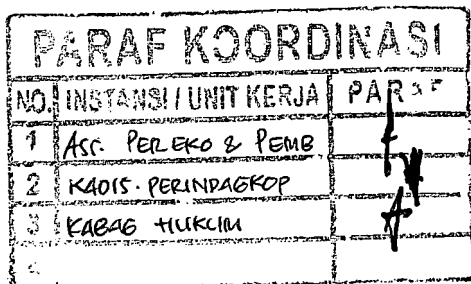 PARAF KOORDINASI
NO. INSTANSI / UNIT KERJA PARAF
1 Ass. PEREKO & PEMB
2 KADIS. PERINDAGKOP
3 KABAG HUKUM
4